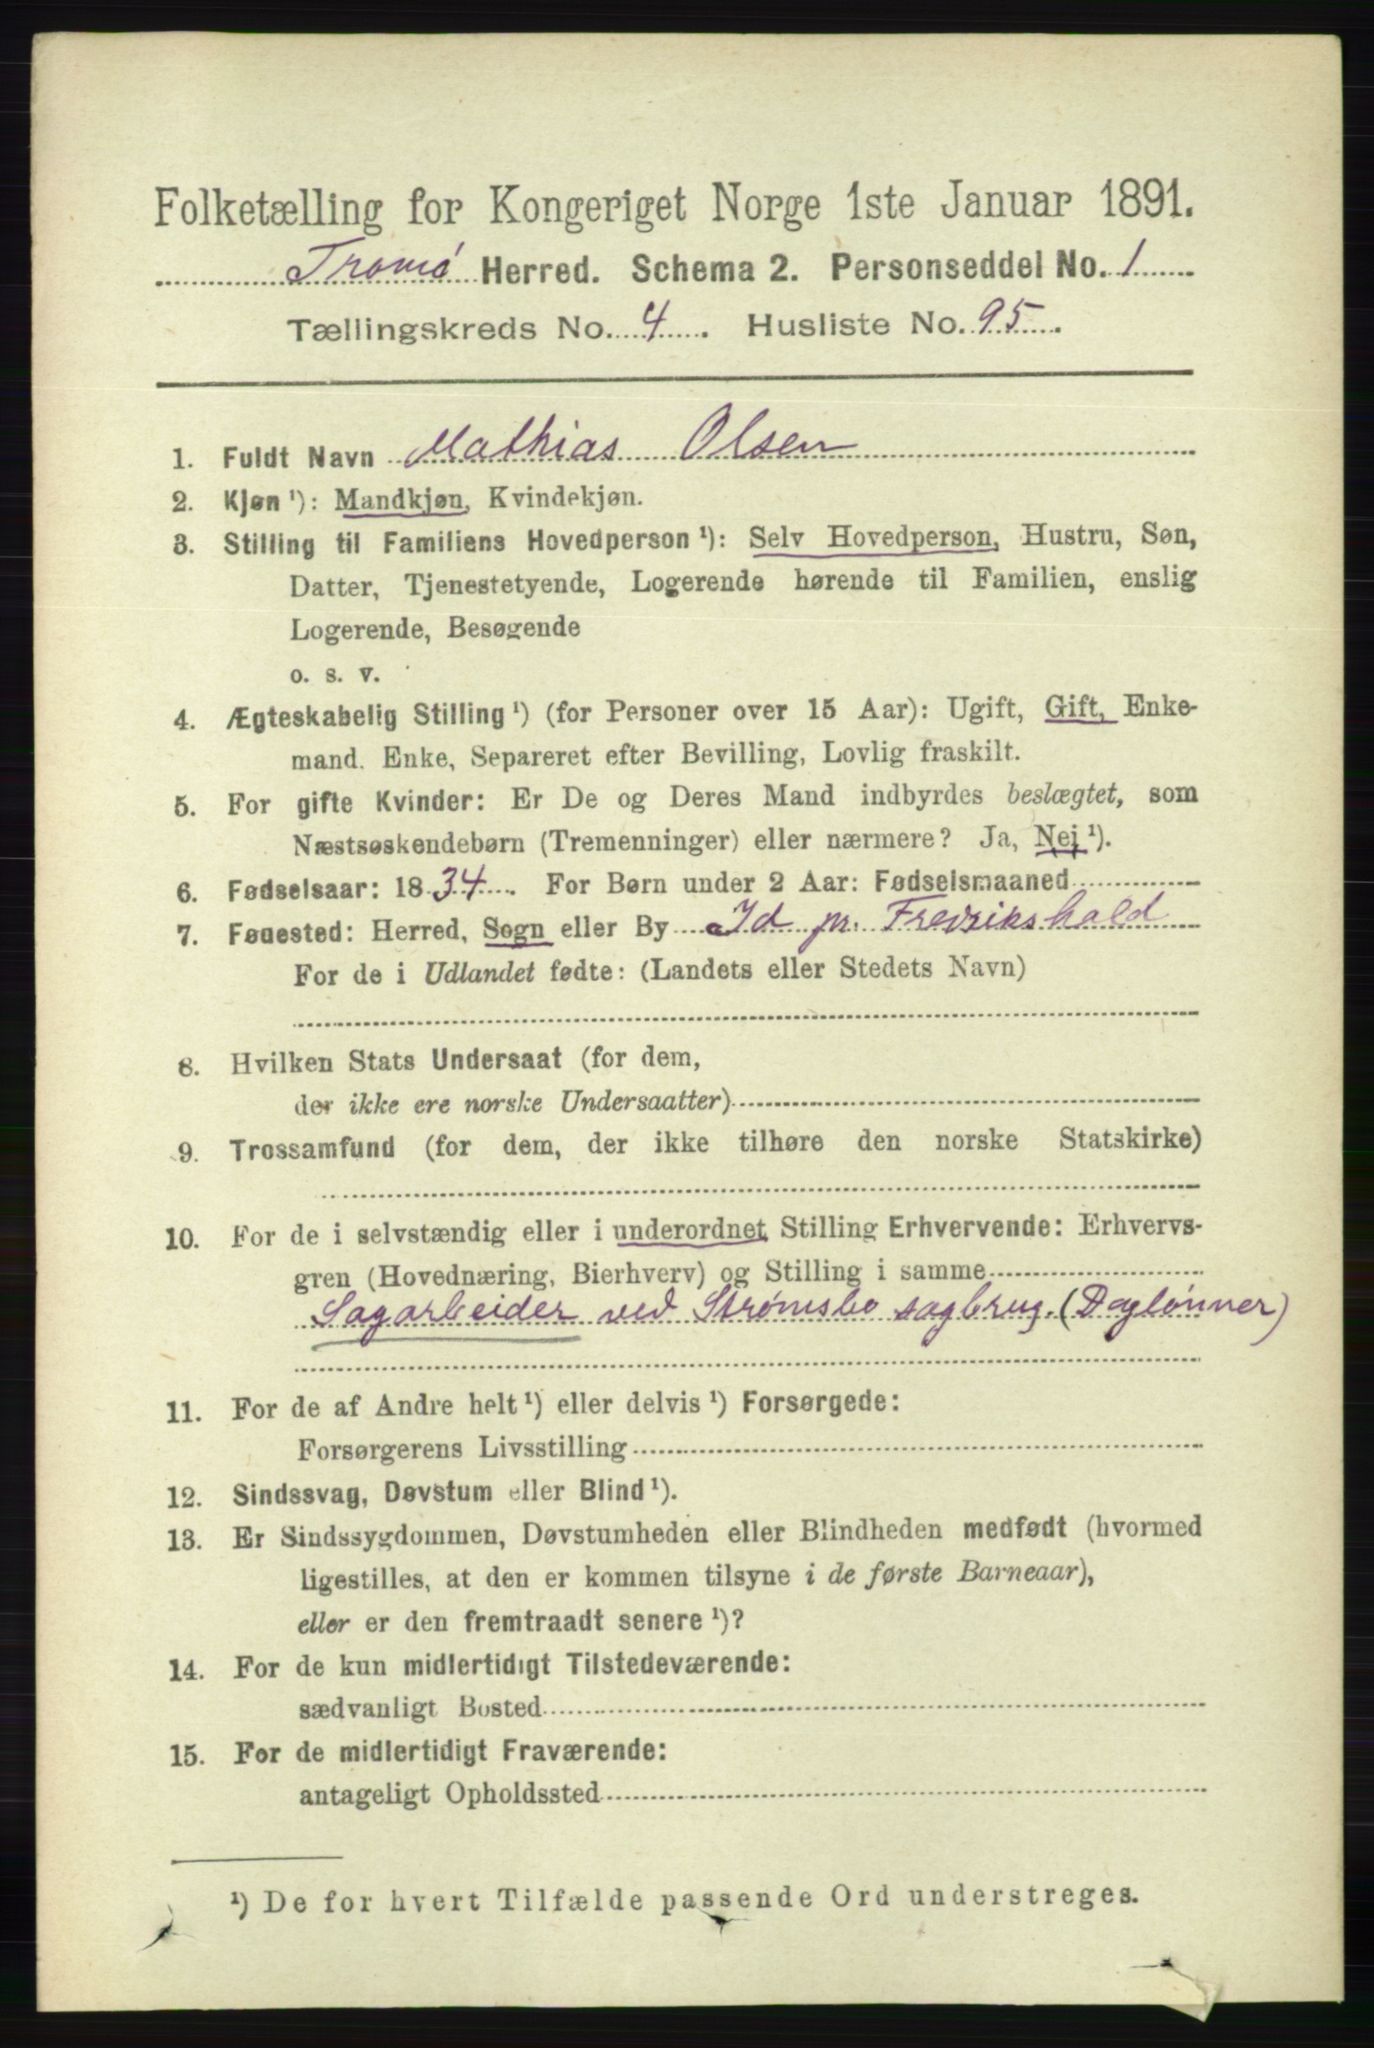 Folketælling for Kongeriget Norge 1ste Januar 1891.
Tromø Herred. Schema 2. Personseddel No. 1
Tællingskreds No. 4. Husliste No. 95.
1. Fuldt Navn Mathias Olsen
2. Kjøn ¹): Mandkjøn, Kvindekjøn.
3. Stilling til Familiens Hovedperson ¹): Selv Hovedperson, Hustru, Søn,
Datter, Tjenestetyende, Logerende hørende til Familien, enslig
Logerende, Besøgende
o. s. v.
4. Ægteskabelig Stilling ¹) (for Personer over 15 Aar): Ugift, Gift, Enke-
mand. Enke, Separeret efter Bevilling, Lovlig fraskilt.
5. For gifte Kvinder: Er De og Deres Mand indbyrdes beslægtet, som
Næstsøskendebørn (Tremenninger) eller nærmere? Ja, Nei ¹).
6. Fødselsaar: 1834. For Børn under 2 Aar: Fødselsmaaned
7. Føuested: Herred, Sogn eller By Id pr. Fredrikshald
For de i Udlandet fødte: (Landets eller Stedets Navn)
8. Hvilken Stats Undersaat (for dem,
der ikke ere norske Undersaatter)
9. Trossamfund (for dem, der ikke tilhøre den norske Statskirke)
10. For de i selvstændig eller i underordnet Stilling Erhvervende: Erhvervs-
gren (Hovednæring, Bierhverv) og Stilling i samme
Sagarbeider ved Strømsbo sagbrug. (Daglønner)
11. For de af Andre helt ¹) eller delvis ¹) Forsørgede:
Forsørgerens Livsstilling
12. Sindssvag, Døvstum eller Blind ¹).
13. Er Sindssygdommen, Døvstumheden eller Blindheden medfødt (hvormed
ligestilles, at den er kommen tilsyne i de første Barneaar),
eller er den fremtraadt senere ¹)?
14. For de kun midlertidigt Tilstedeværende:
sædvanligt Bosted
15. For de midlertidigt Fraværende:
antageligt Opholdssted
¹) De for hvert Tilfælde passende Ord understreges.